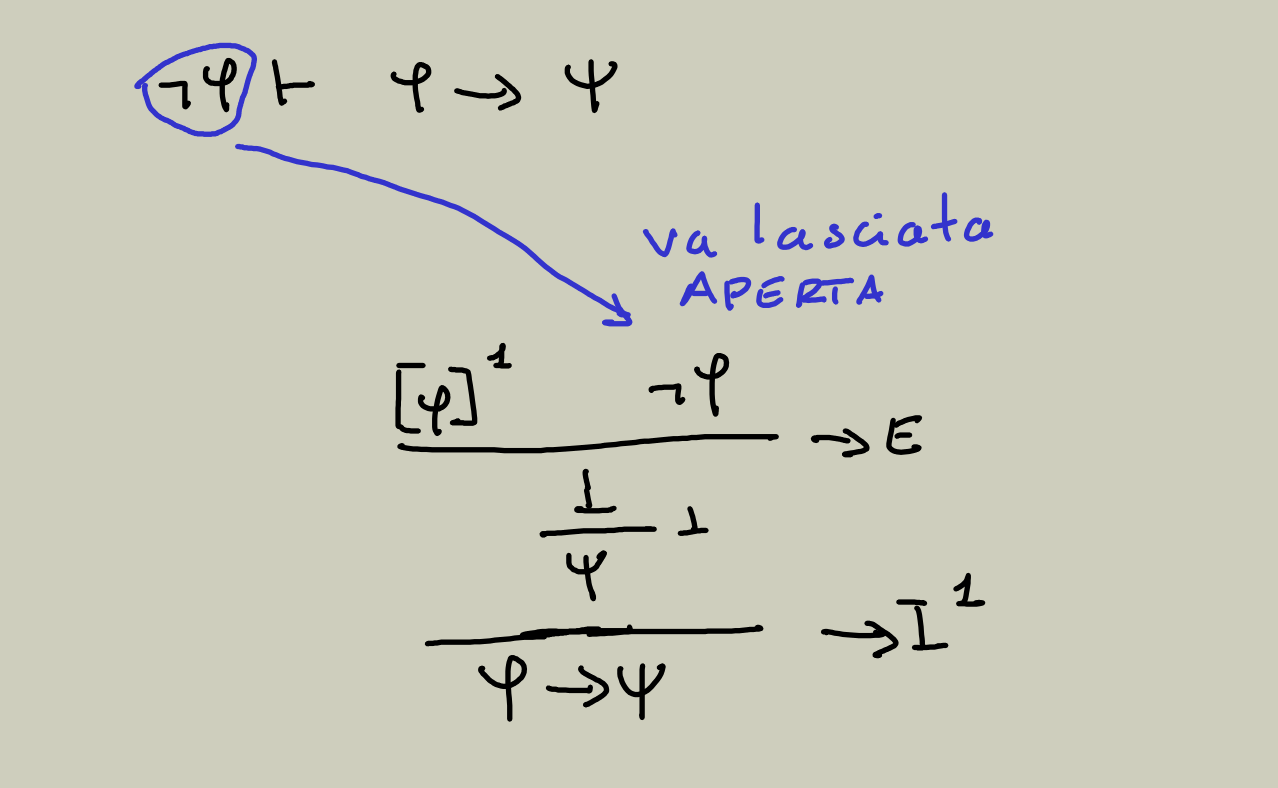 ¬φ ⊢ φ → ψ
va lasciata
APERTA
[φ]¹ ¬φ
→ E
⊥
⊥
ψ
→ I¹
φ → ψ